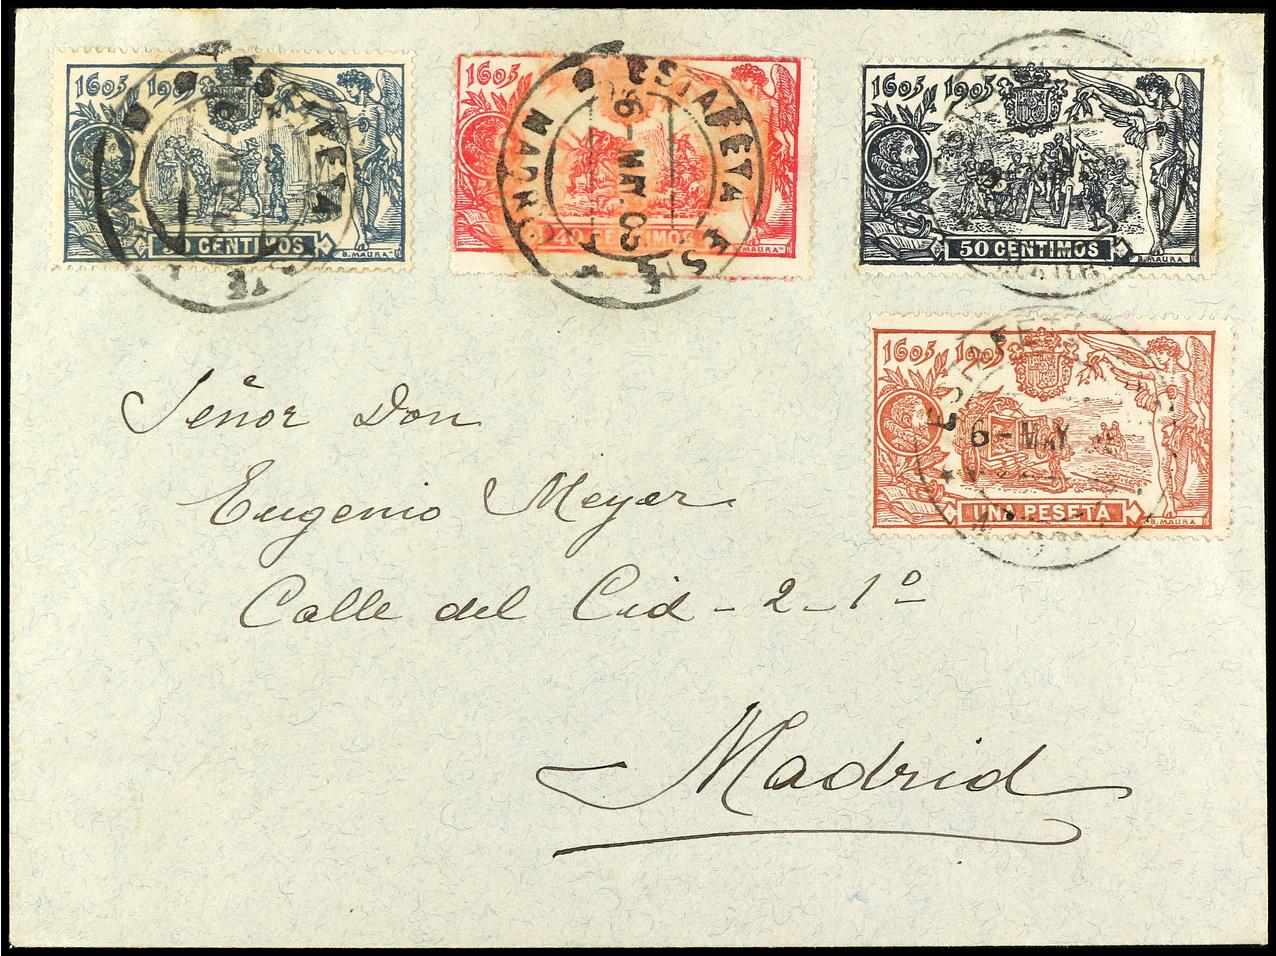 1605 1905
30 CENTIMOS
B. MAURA
ESTAFETA
1605
40 CENTIMOS
B. MAURA
ESTAFETA
MADRID
1605 1905
50 CENTIMOS
B. MAURA
1605 1905
UNA PESETA
B. MAURA
6 - MAY
Señor Don
Eugenio Meyer
Calle del Cid - 2 - 1º
Madrid